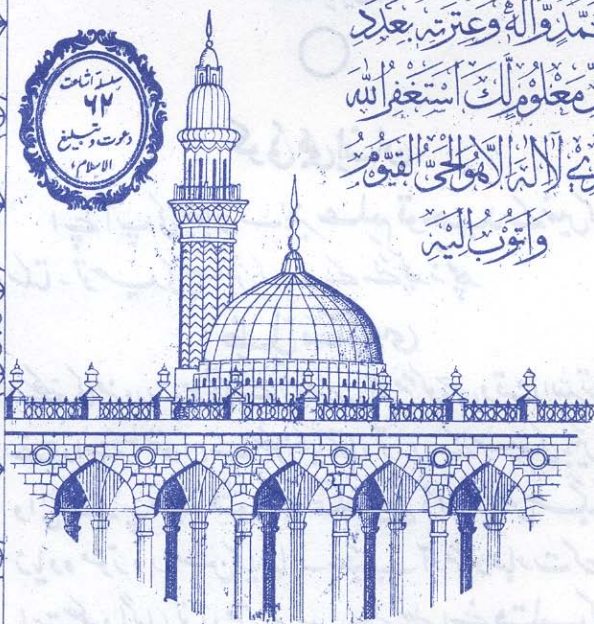 سلسلۂ اشاعت
۶۲
دعوت و تبلیغ
الاسلام
مَّدٍ وَّاٰلِهٖ وَعِتْرَتِهٖ بِعَدَدِ
مَعْلُوْمٍ لَّكَ اَسْتَغْفِرُ اللهَ
لَاۤ اِلٰهَ اِلَّا هُوَ الْحَیُّ الْقَیُّوْمُ
وَاَتُوْبُ اِلَیْهِ